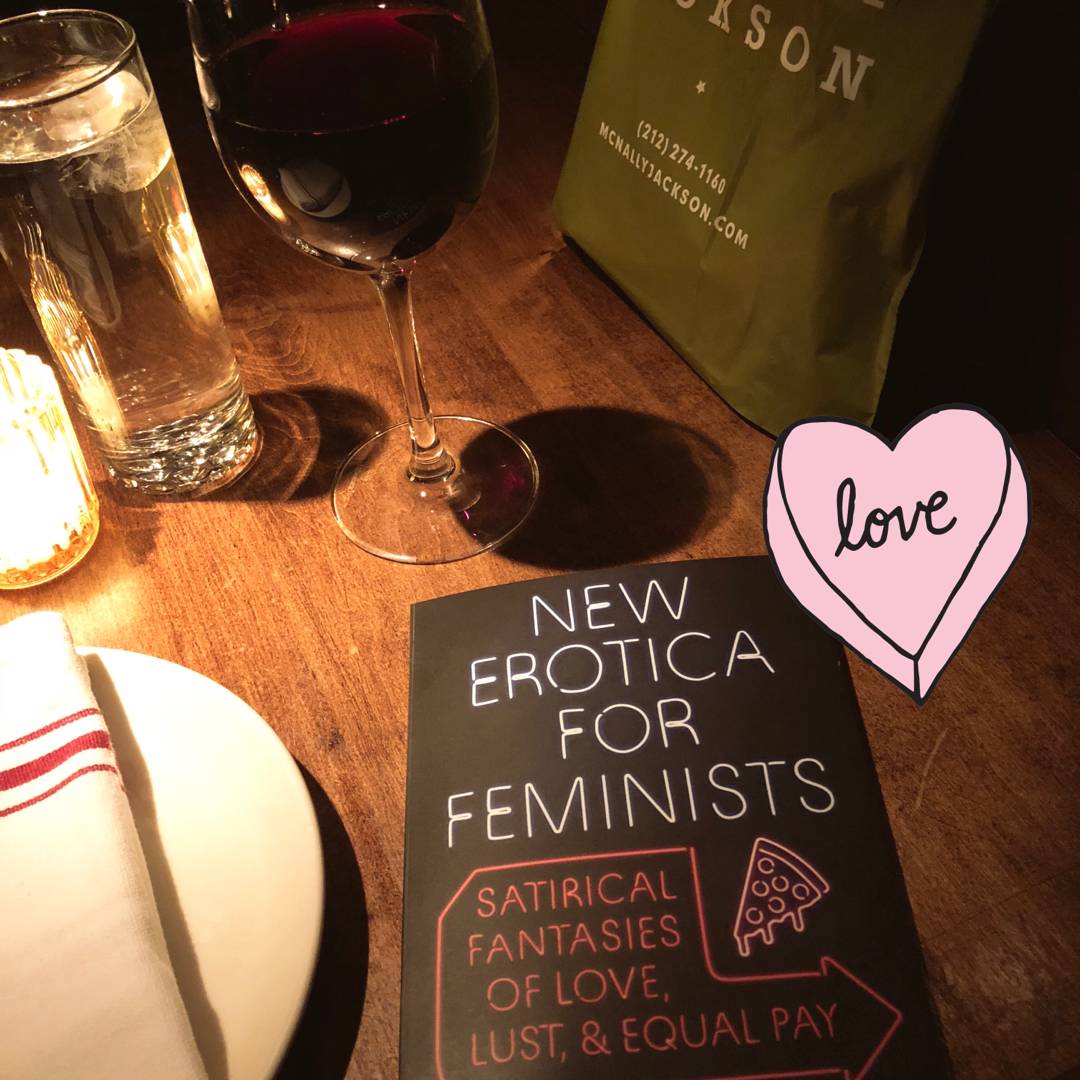 KSON
(212) 274-1160
MCNALLYJACKSON.COM
love
NEW
EROTICA
FOR
FEMINISTS
SATIRICAL
FANTASIES
OF LOVE,
LUST, & EQUAL PAY